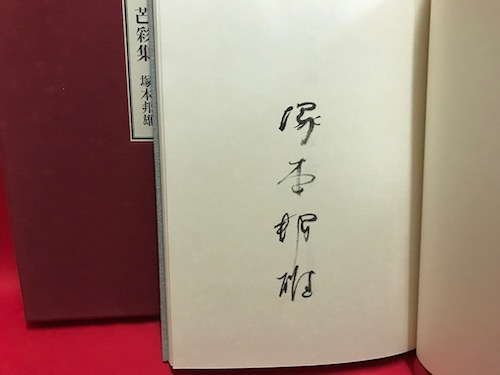 芒彩集
塚本邦雄
塚本邦雄